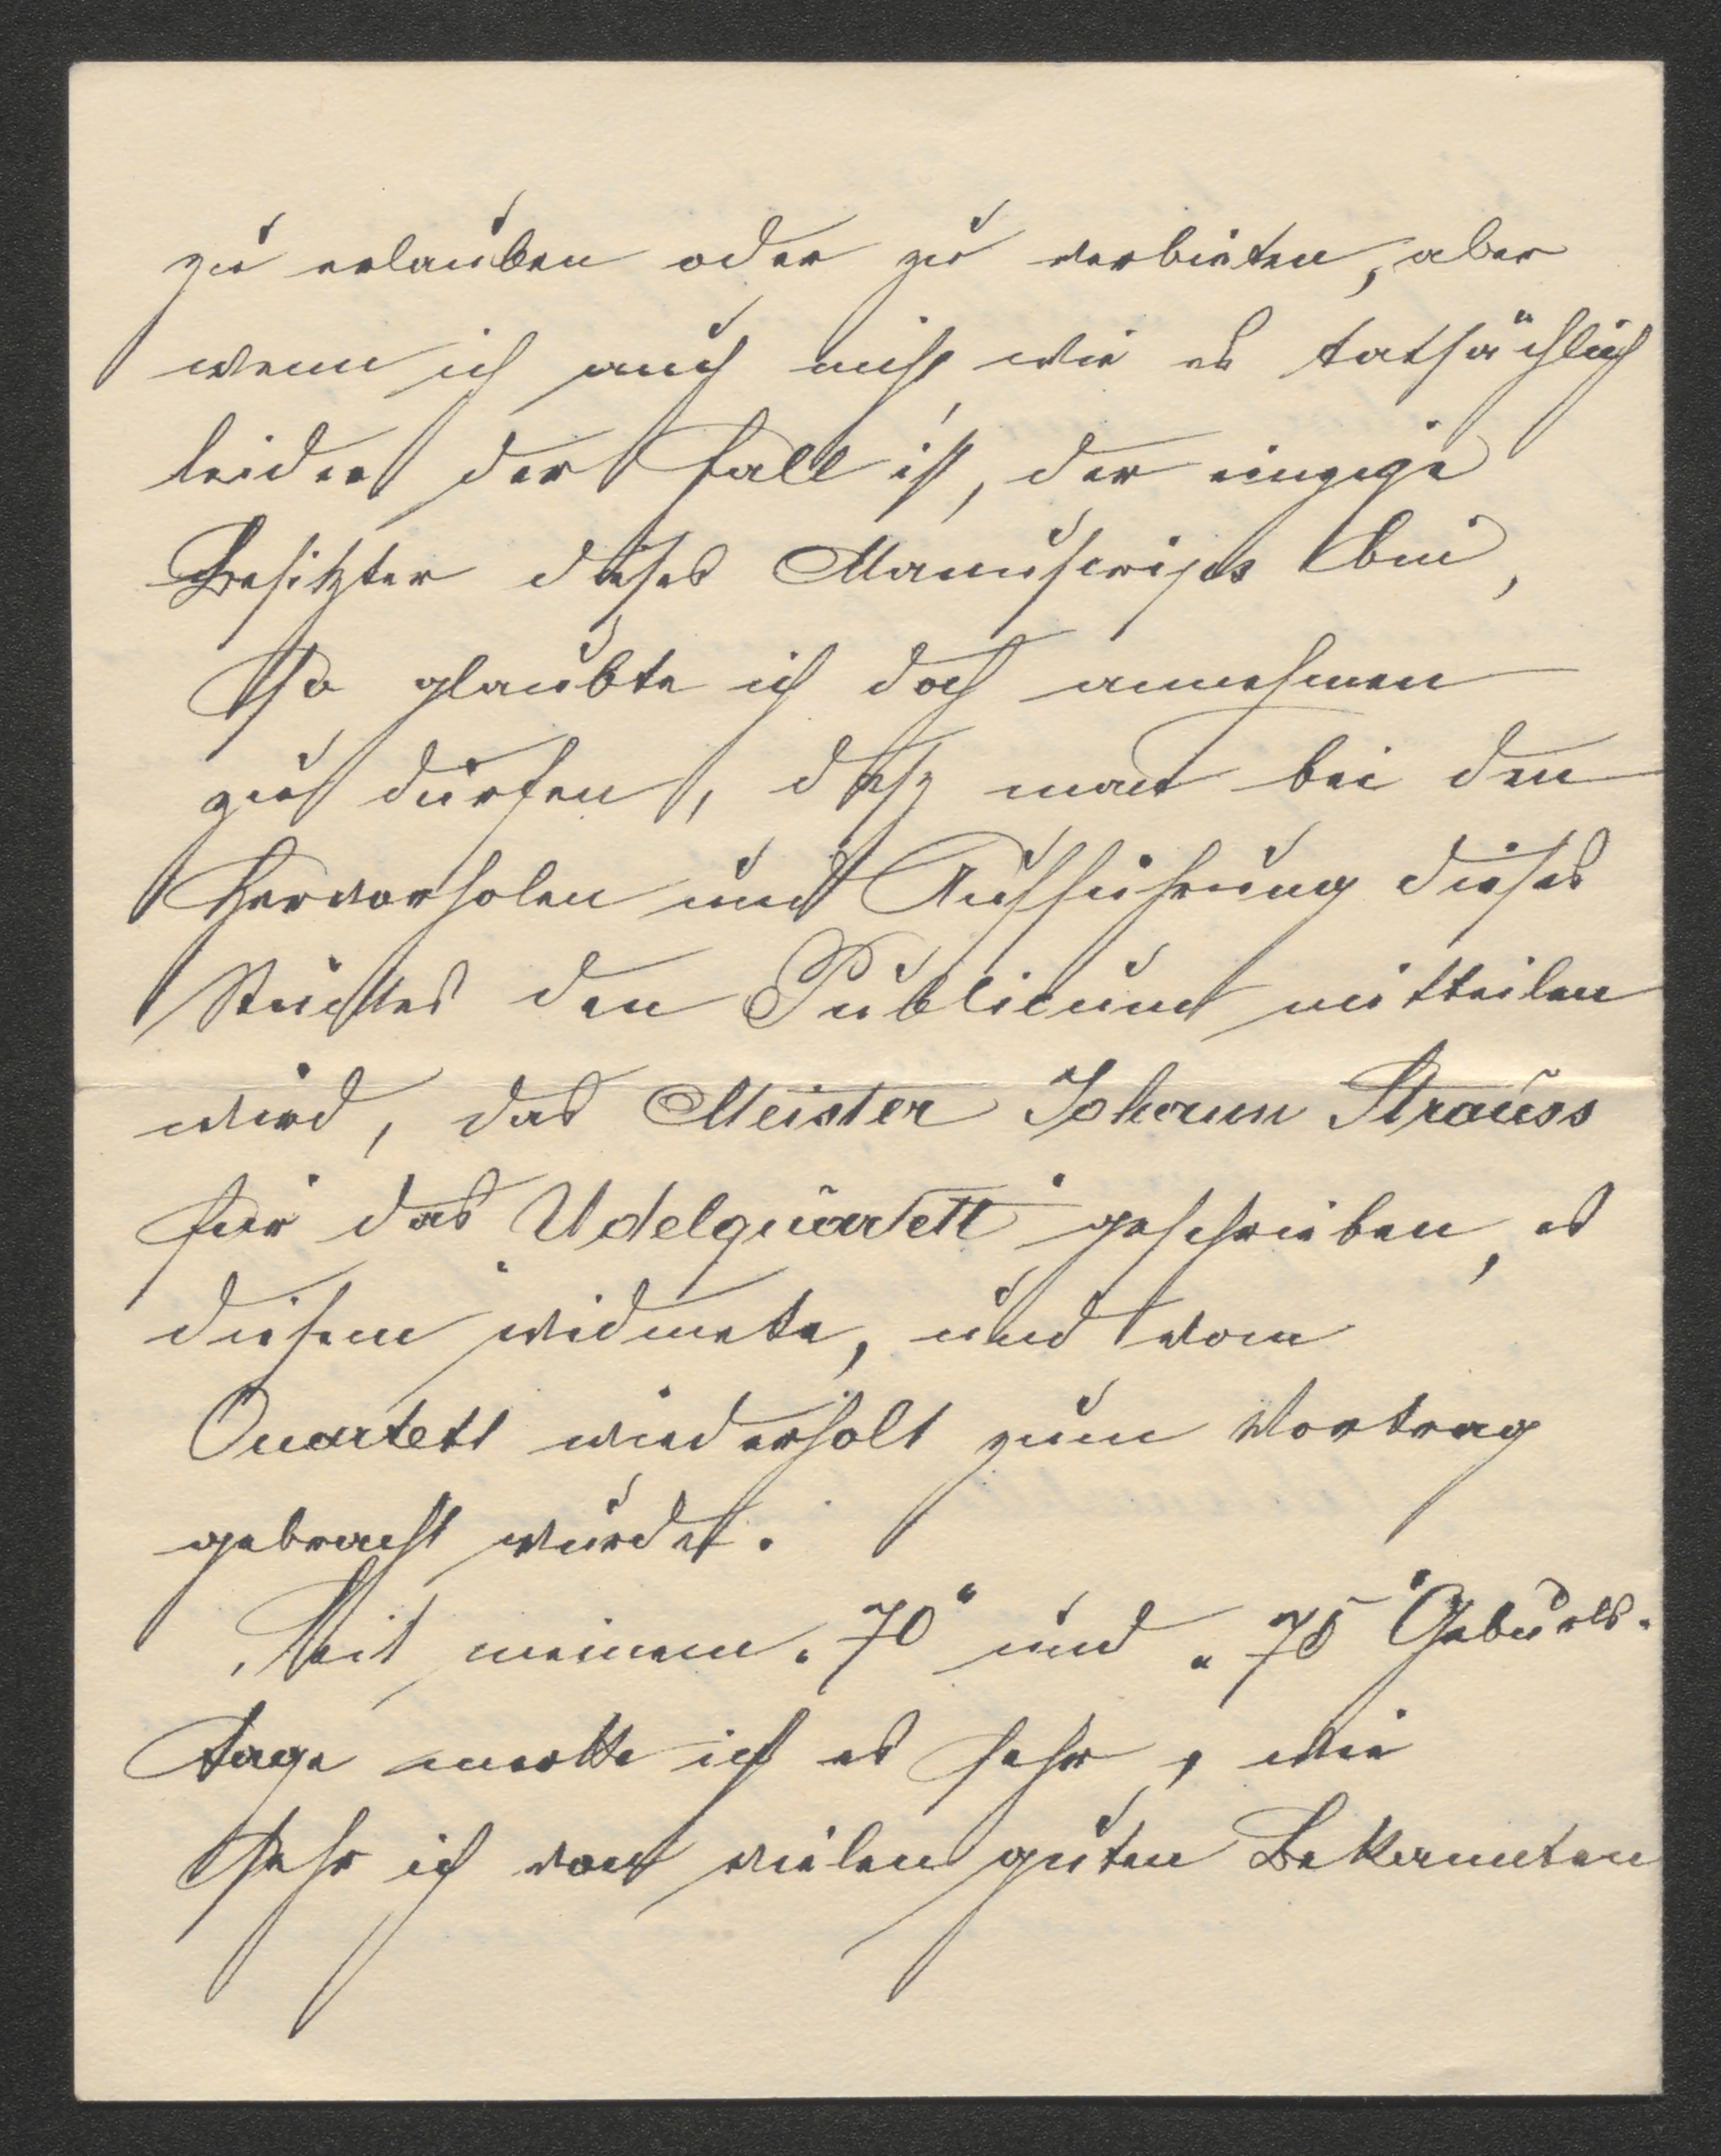 zu erlauben oder zu verbieten, aber
wenn ich auch nicht, wie es tatsächlich
leider der Fall ist, der einzige
Besitzter dieses Manuscripts bin,
so glaubte ich doch annehmen
zu dürfen, dasz man bei den
Hervorholen und Aufführung dieses
Stückes den Publicum mitteilen
wird, das Meister Johann Strauss
für das „Udelquartett“ geschrieben, es
diesem widmete, und vom
Quartett wiederholt zum Vortrag
gebracht wurde.
Seit meinem „70“ und „75“ Geburts-
tage merkte ich es sehr, wie
sehr ich von vielen guten Bekannten